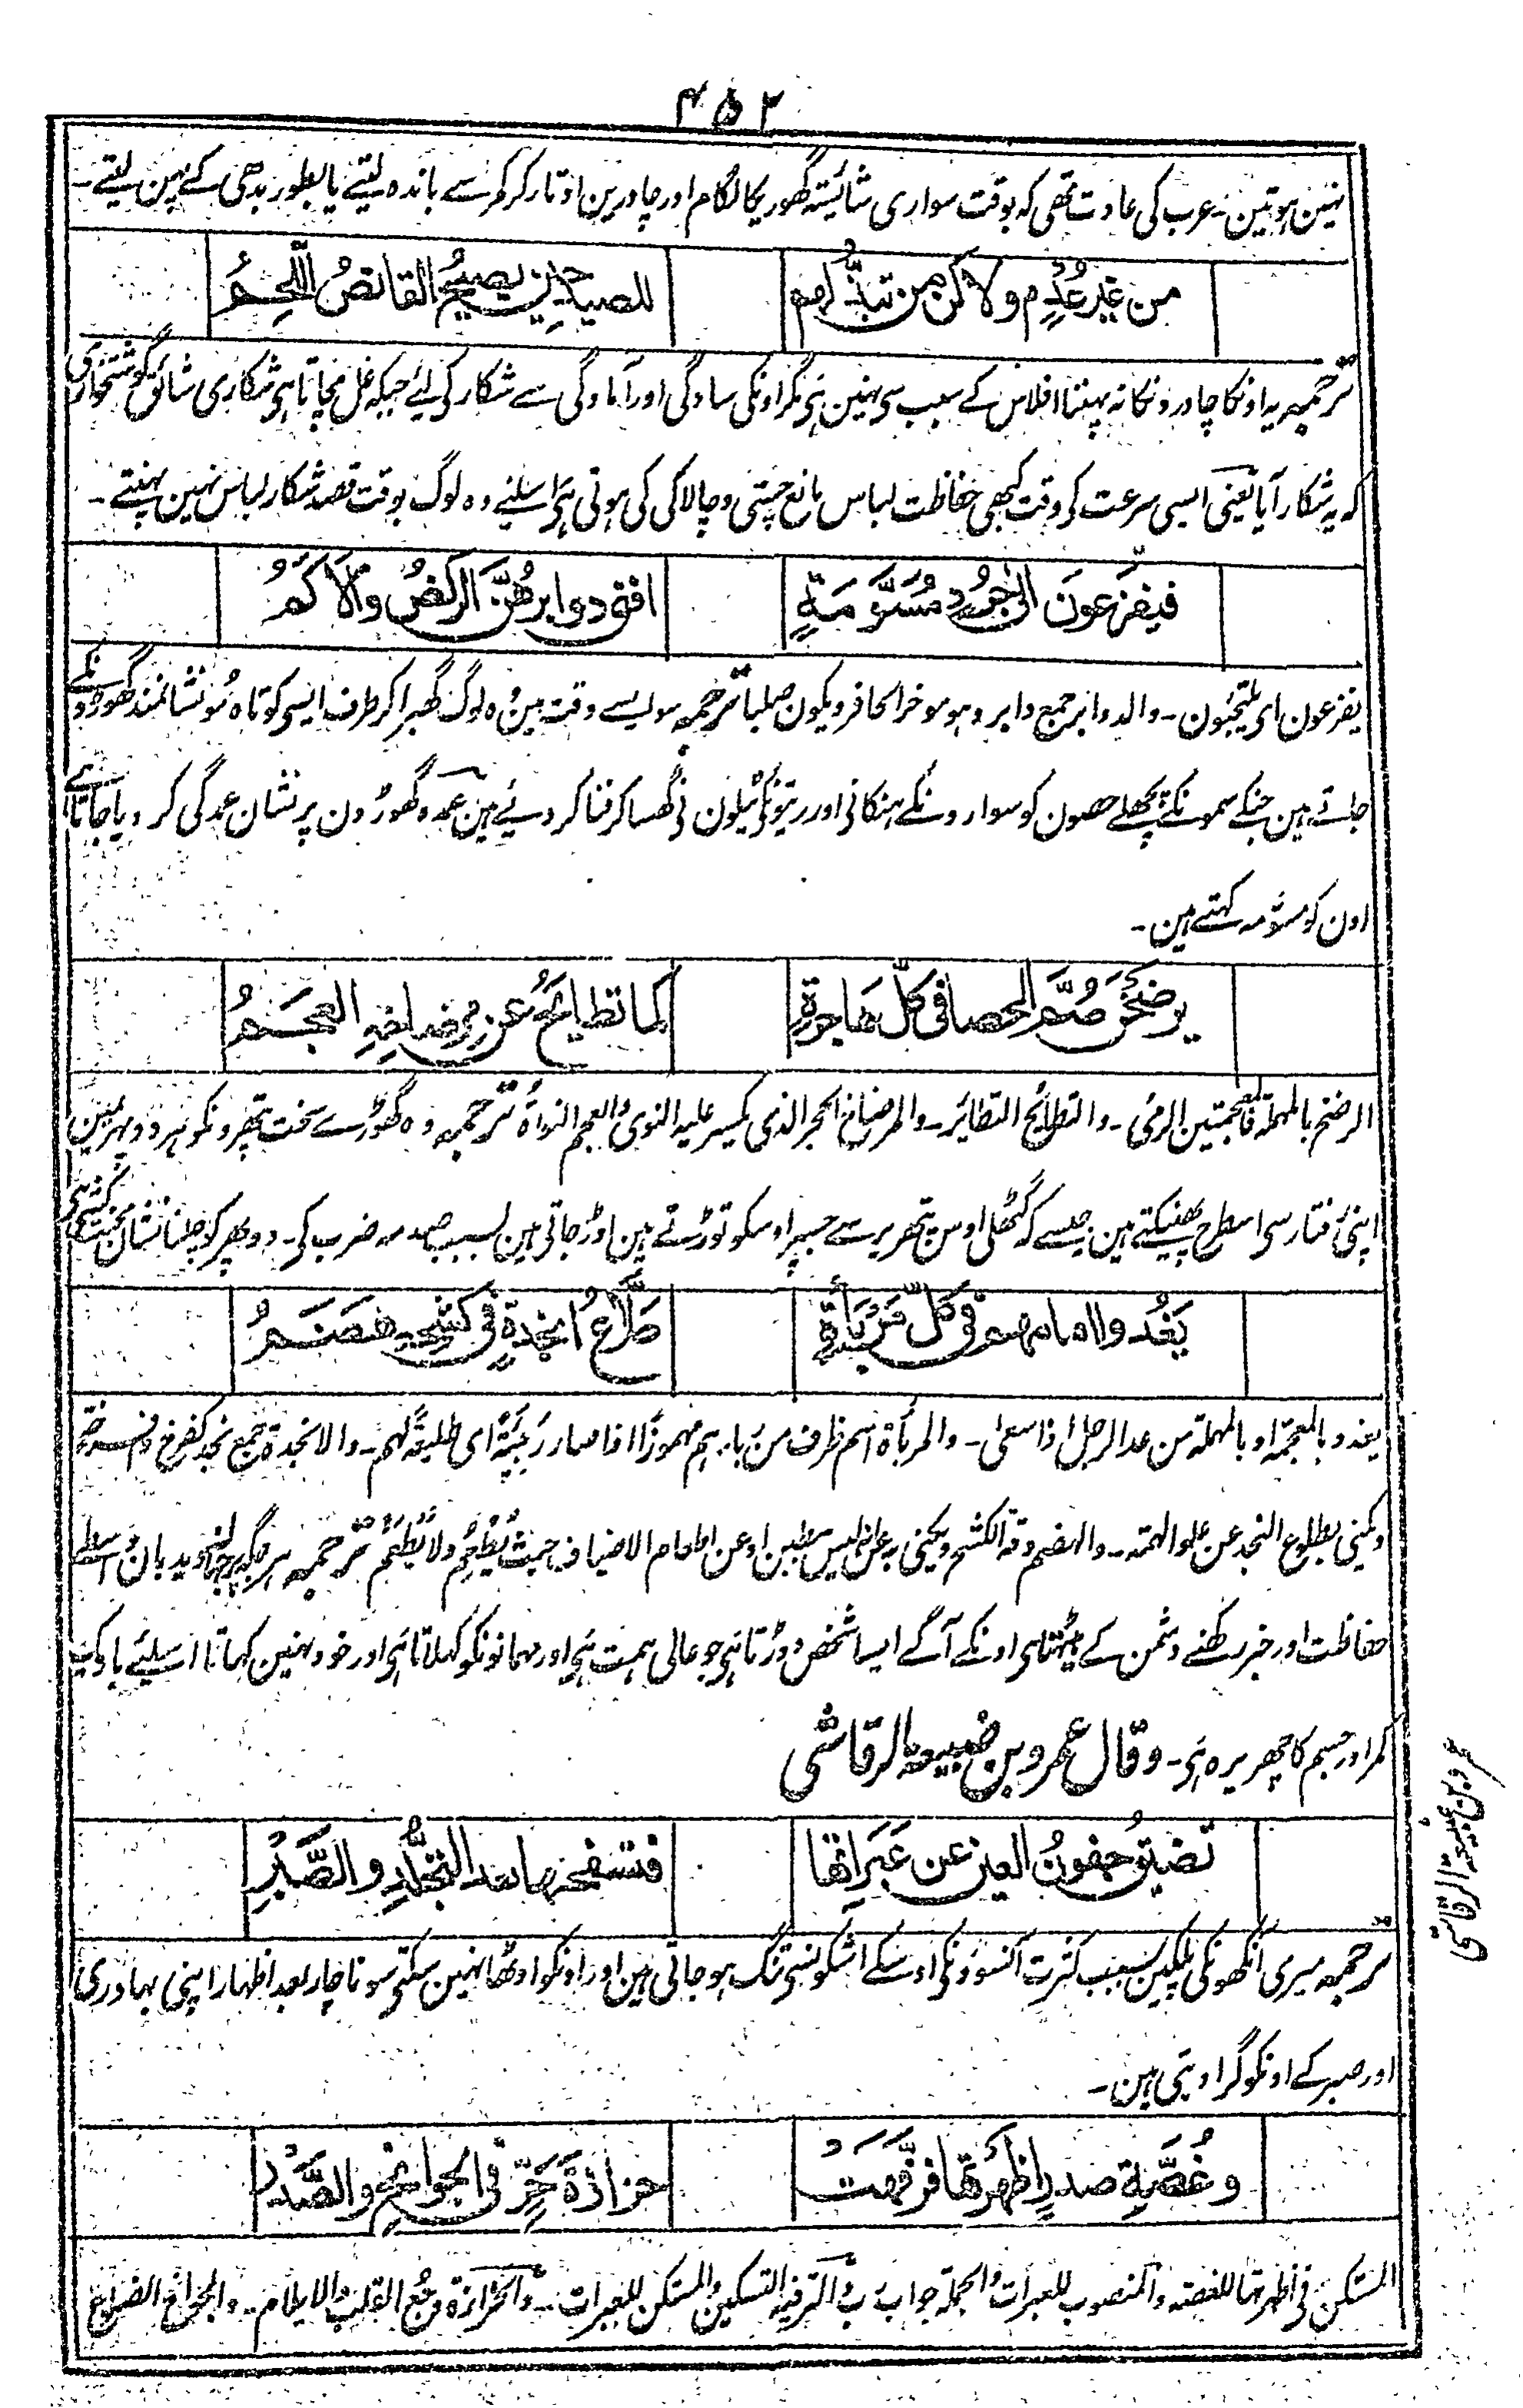 ۴۵۲
نہین ہوتین۔ عرب کی عادت تھی کہ بوقت سواری شائستہ گھوڑیکا لگام اور چادرین اوتار کر کمر سے باندہ لیتے یا بطور بدھی کے پہن لیتے۔
من غیر عُدْمٍ ولاکن من تبذُّلهم للصید حین یصیحُ القانصُ اللَّحِمُ
ترجمہ یہ اونکا چادرونکا نہ پہننا افلاس کے سبب سی نہین ہی مگر اونکی سادگی اور آمادگی سے شکار کی لئے جبکہ غل مچاتا ہی شکاری شائق گوشتخواری
کہ یہ شکار آیا یعنی ایسی سرعت کی وقت کبھی حفاظت لباس مانع چستی و چالاکی کی ہوتی ہی اسلئے وہ لوگ بوقت قصد شکار لباس نہین پہنتے۔
فیفزعونَ الی جُردٍ مُسَوَّمَةٍ افنی دوابرهُنَّ الرکضُ والاَکَمُ
یفزعون ای یلتجئون۔ والدوابر جمع دابر وہو موخر الحافر ویکون صلبا ترجمہ سو ایسے وقت مین وہ لوگ گھبرا کر طرف ایسی کوتاہ مو نشانمند گھوڑونکے
جاتے ہین جنکے سمونکے پچھلے حصون کو سوارونکے ہنکانی اور ریتونکی ٹیلون نی گھسا کر فنا کر دیئے ہین عمدہ گھوڑون پر نشان عمدگی کر دیا جاتا ہے
اون کو مسومہ کہتے ہین۔
یرضخنَ صُمَّ الحصا فی کلّ هاجرةٍ کما تطایحُ عن مرضاخه العجَمُ
الرضخ بالمہملۃ فالمعجمتین الرمی۔ والتطایح التطائر۔ والمرضاخ الحجر الذی یکسر علیہ النوی والعجم النواۃ ترجمہ وہ گھوڑے سخت پتھرونکو ہر دوپہر مین
اپنی رفتار سی اسطرح پھینکتے ہین جیسے کہ گٹھلی اوس پتھر سے جسپر اوسکو توڑتے ہین اوڑ جاتی ہین بسبب صدمہ ضرب کی۔ دوپہر کو چلنا نشان
یَغْدو امامهم فی کلّ مَرْبأةٍ طَلَّاعُ انجدةٍ فی کشحه هَضَمُ
یغدو بالمعجمۃ او بالمہملۃ من عدا الرجل اذا سعی۔ والمربأۃ اسم ظرف من ربأہم مہموزًا اذا صار رَبِیْئَةً ای طلیعۃً لہم۔ والانجدۃ جمع نجد
ویکنی بطلوع النجد عن علو الہمۃ۔ والہضم دقۃ الکشح ویکنی بہ عن انہ لیس مبطین او عن اطعام الاضیاف حیث یُطْعِمُ ولا یُطْعَمُ ترجمہ ہر جگہ پر جہان دیدبان واسطے
حفاظت اور خبر رکھنے دشمن کے بیٹھتا ہی اونکے آگے ایسا شخص دوڑتا ہی جو عالی ہمت ہی اور مہمانونکو کہلاتا ہی اور خود نہین کہاتا اسلیئے باریک
کمر اور جسم کا چھریرہ ہی۔ وقال عمرو بن ضبیعة الرقاشی
تضیقُ جفونُ العین عن عَبَراتها فتسفحها بعد التجلُّدِ والصَّبْرِ
ترجمہ میری آنکھونکی پلکین بسبب کثرت آنسوؤنکی اوسکے اشکونسی تنگ ہو جاتی ہین اور اونکو اوٹھا نہین سکتی سو ناچار بعد اظہار اپنی بہادری
اور صبر کے اونکو گرا دیتی ہین۔
وغُصَّةِ صدرٍ اظهرتها فرَفَّهَتْ حزازةَ حَرٍّ فی الجوانحِ والصَّدْرِ
المستکن فی اظہرتہا للغصۃ والمنصوب للعبرات والجملۃ جواب رب والترفیہ التسکین والمستکن للعبرات۔ والحزازۃ وجع القلب والایلام۔ والجوانح الضلوع
عمرو بن ضبیعة الرقاشی